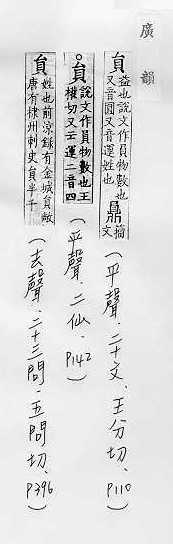 廣韻
貟 益也說文作員物數也
又音圓又音運姓也
鼎 籀文
(平聲.二十文、王分切、P110)
貟 說文作員物數也王
權切又云運二音四
(平聲、二仙、P142)
貟 姓也前涼錄有金城貟敞
唐有棣州刺史貟半千
(去聲、二十三問、五問切、P396)